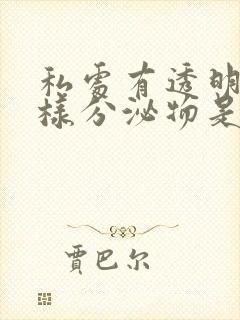 私處有透明
樣分泌物是
賈巴尔